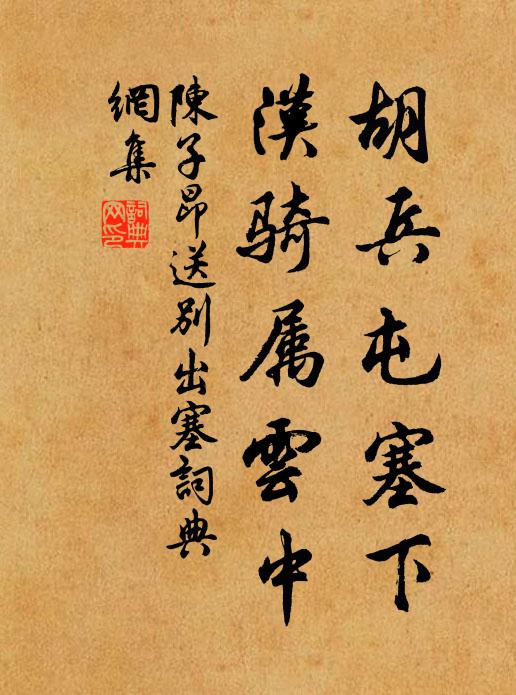 胡兵屯塞下
漢騎属雲中
陳子昂送別出塞詞典
網集
詞典
网印